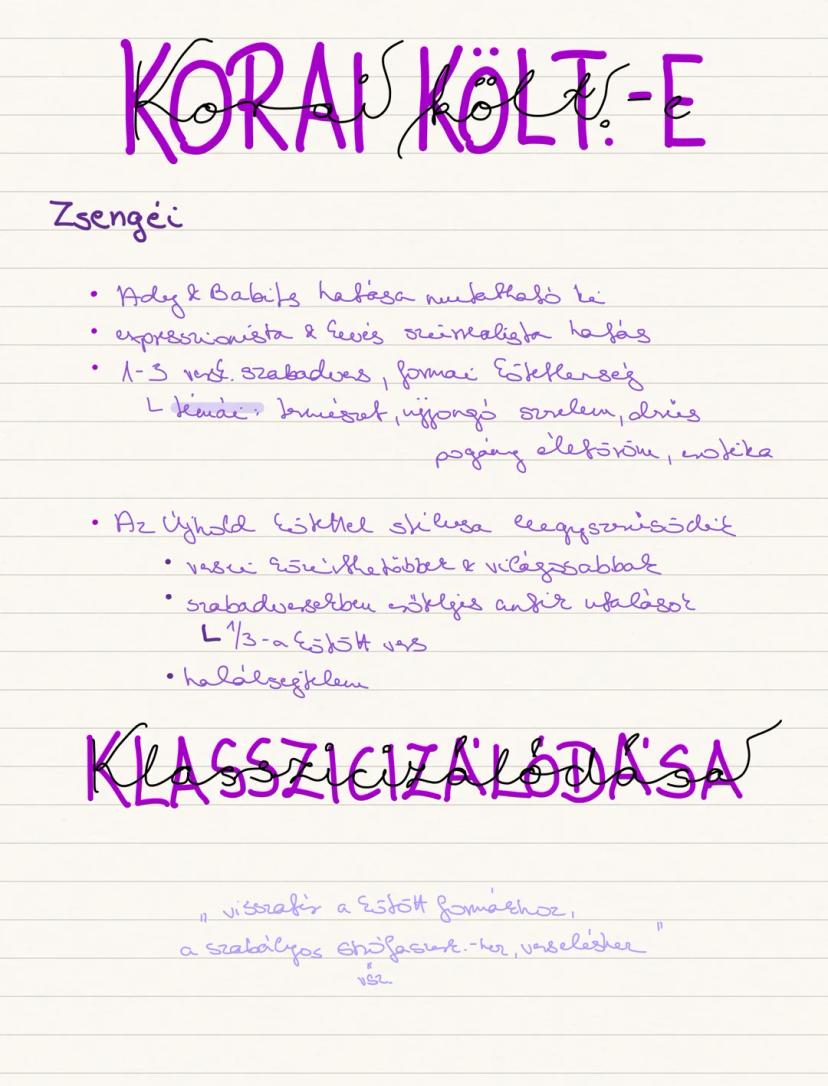 KORAI KÖLT.-E
Korai költ.-e
Zsengéi
• Ady & Babits hatása mutatható ki
• expresszionista & kevés szürrealista hatás
• 1-3 versk. szabadvers, formai kötetlenség
└ témái: természet, ujjongó szerelem, derűs
pogány életöröm, erotika
• Az Újhold kötettel stílusa leegyszerűsödik
• versei közérthetőbbek & világosabbak
• szabadversekben erőteljes antik utalások
└ 1/3-a kötött vers
• halálsejtelem
KLASSZICIZÁLÓDÁSA
Klasszicizálódása
„ visszatér a kötött formákhoz,
a szabályos strófaszerk.-hez, verseléshez "
vsz.